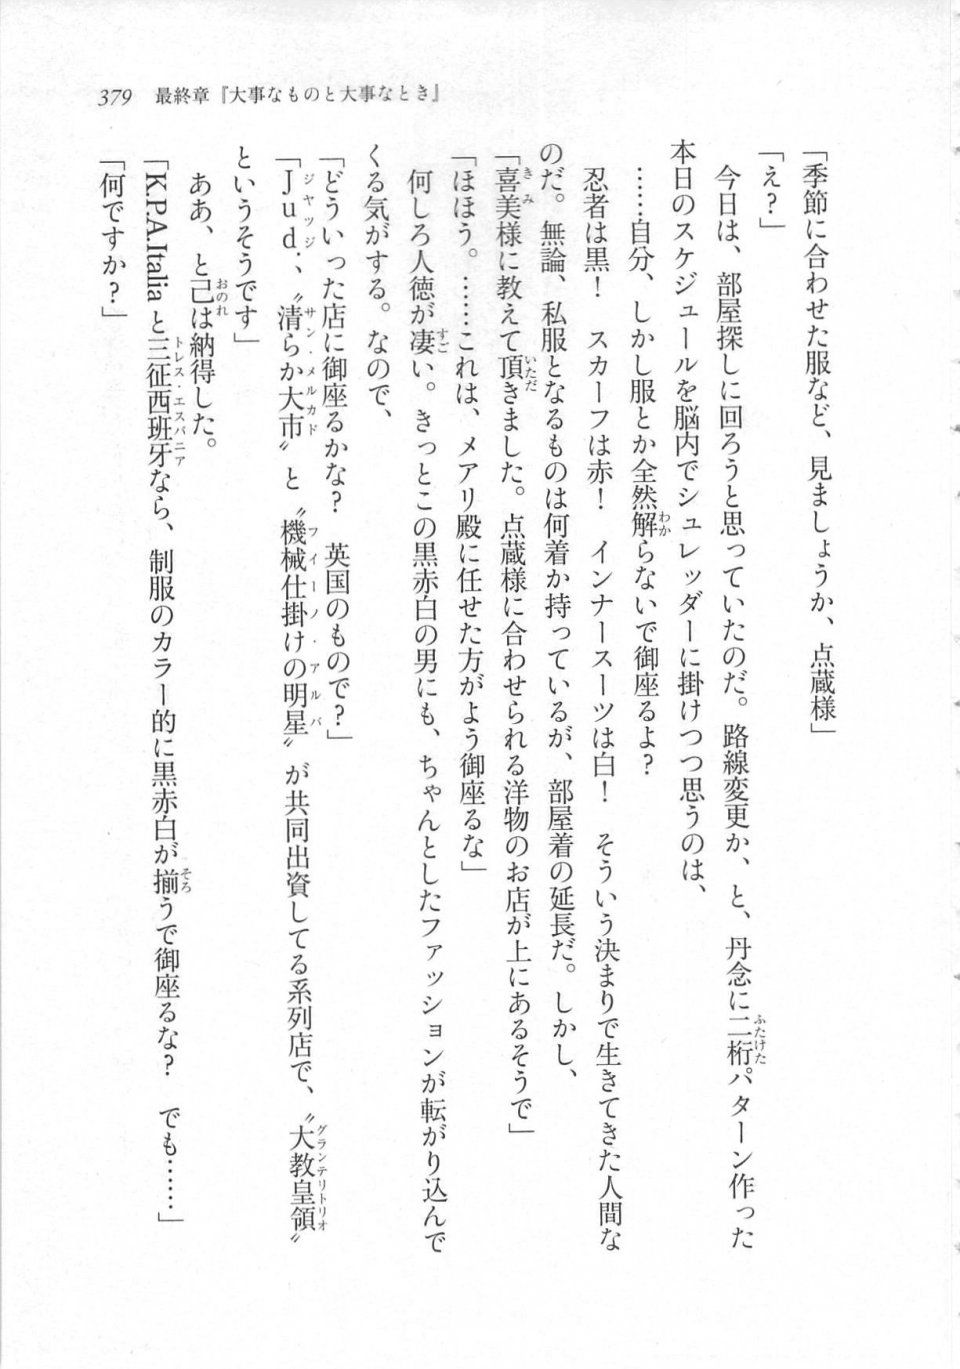 379　最終章『大事なものと大事なとき』
「季節に合わせた服など、見ましょうか、点蔵様」
「え？」
　今日は、部屋探しに回ろうと思っていたのだ。路線変更か、と、丹念に二桁パターン作った
本日のスケジュールを脳内でシュレッダーに掛けつつ思うのは、
　……自分、しかし服とか全然解らないで御座るよ？
　忍者は黒！　スカーフは赤！　インナースーツは白！　そういう決まりで生きてきた人間な
のだ。無論、私服となるものは何着か持っているが、部屋着の延長だ。しかし、
「喜美様に教えて頂きました。点蔵様に合わせられる洋物のお店が上にあるそうで」
「ほほう。……これは、メアリ殿に任せた方がよう御座るな」
　何しろ人徳が凄い。きっとこの黒赤白の男にも、ちゃんとしたファッションが転がり込んで
くる気がする。なので、
「どういった店に御座るかな？　英国のもので？」
「Ｊｕｄ．、〝清らか大市〟と〝機械仕掛けの明星〟が共同出資してる系列店で、〝大教皇領〟
というそうです」
　ああ、と己は納得した。
「K.P.A.Italiaと三征西班牙なら、制服のカラー的に黒赤白が揃うで御座るな？　でも……」
「何ですか？」